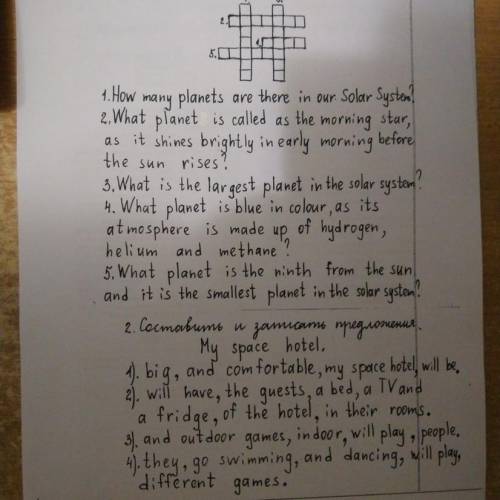 2.
4.
5.
1. How many planets are there in our Solar System?
2. What planet is called as the morning star,
as it shines brightly in early morning before
the sun rises?
3. What is the largest planet in the solar system?
4. What planet is blue in colour, as its
atmosphere is made up of hydrogen,
helium and methane?
5. What planet is the ninth from the sun
and it is the smallest planet in the solar system?
2. Составить и записать предложения.
My space hotel.
1). big, and comfortable, my space hotel, will be.
2). will have, the guests, a bed, a TV and
a fridge, of the hotel, in their rooms.
3). and outdoor games, indoor, will play, people.
4). they, go swimming, and dancing, will play,
different games.